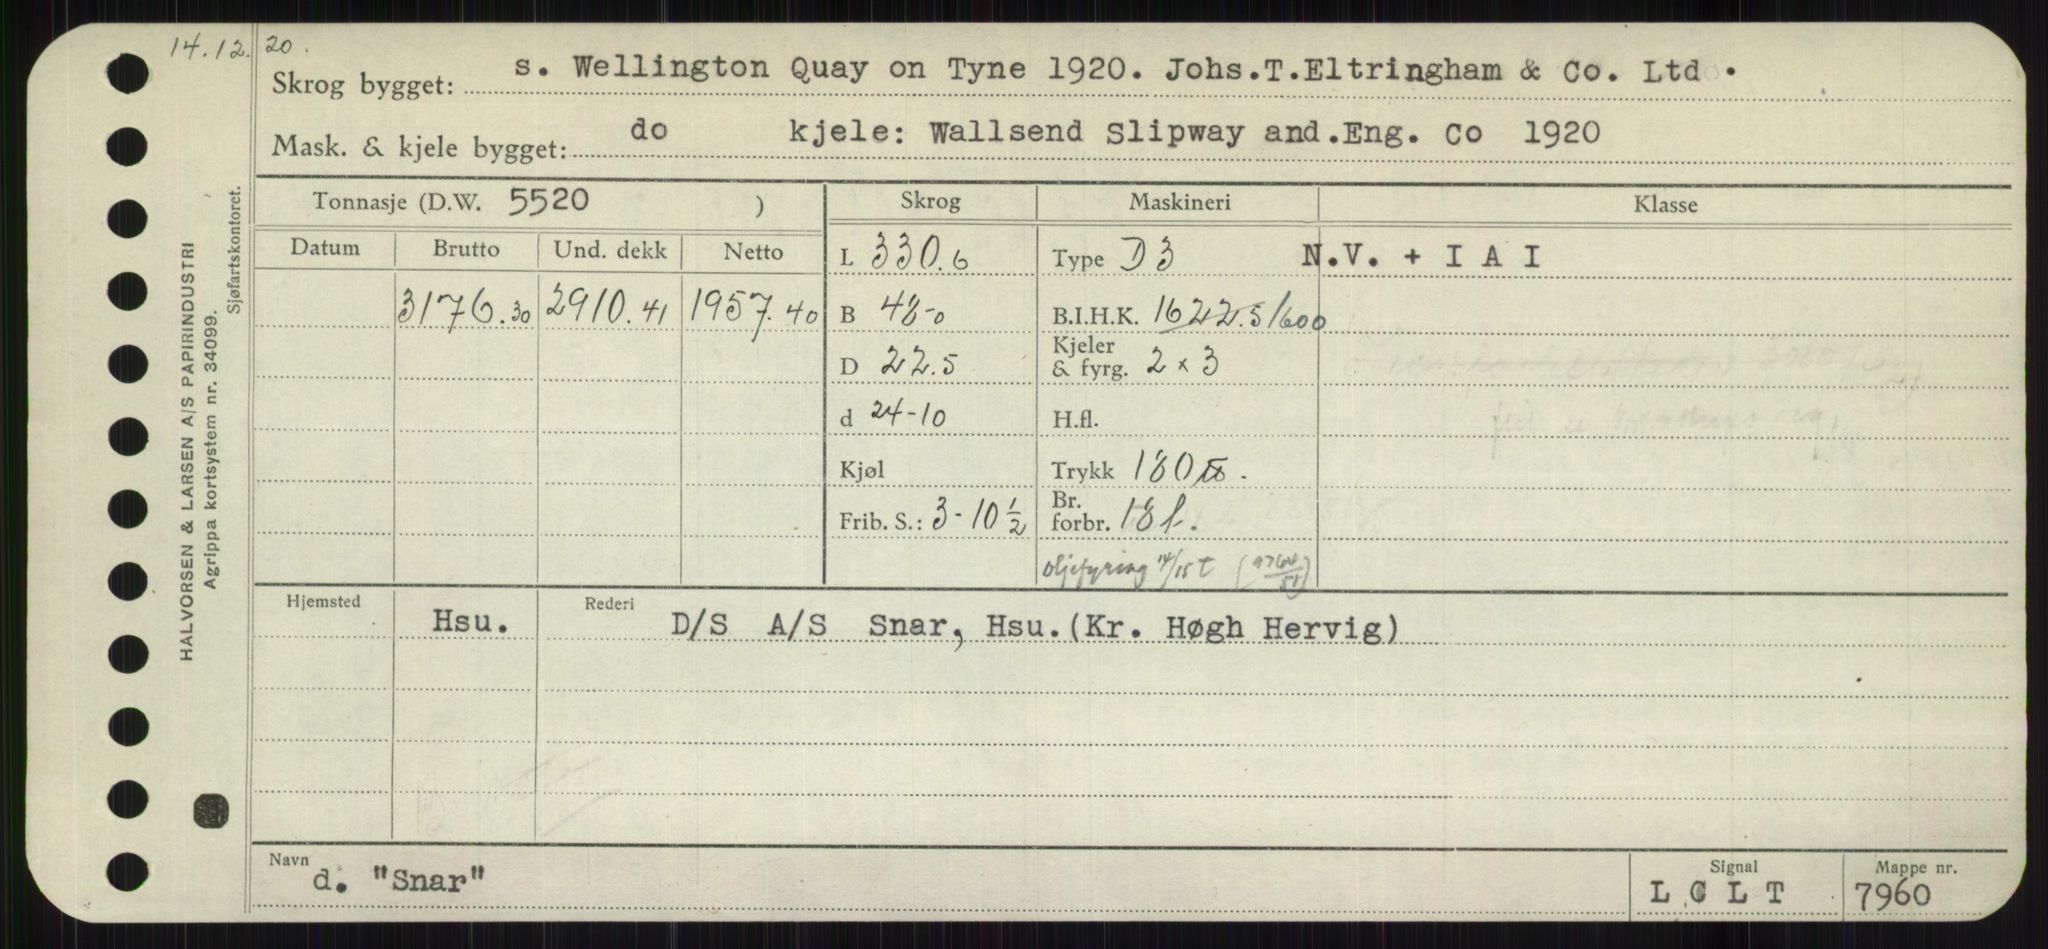 14.12.20.
Skrog bygget: s. Wellington Quay on Tyne 1920. Johs.T.Eltringham & Co. Ltd.
Mask. & kjele bygget: do kjele: Wallsend Slipway and.Eng. Co 1920
Tonnasje (D.W. 5520 ) Skrog Maskineri Klasse
Datum Brutto Und. dekk Netto L 330.6 Type D3 N.V. + I A I
3176.30 2910.41 1957.40 B 48-0 B.I.H.K. 1622.5 1600
D 22.5 Kjeler & fyrg. 2 x 3
d 24-10 H.fl.
Kjøl Trykk 180 lbs.
Frib. S.: 3-10 1/2 Br. forbr. 18 t.
oljefyring 14/15 t
Hjemsted Hsu. Rederi D/S A/S Snar, Hsu.(Kr. Høgh Hervig)
Navn d. "Snar" Signal L C L T Mappe nr. 7960
HALVORSEN & LARSEN A/S PAPIRINDUSTRI
Agrippa kortsystem nr. 34099.
Sjøfartskontoret.